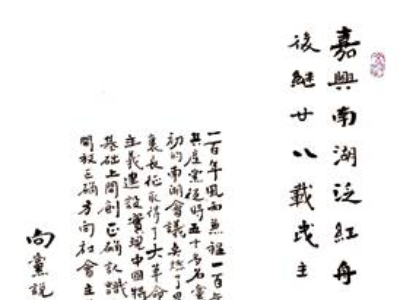 嘉興南湖泛紅舟
後繼廿八載民主
一百年風雨兼程一百年
共產黨從時五十多名黨
初的南湖會議奠燃了
裏長征取得了大革命
主義建設實現中國特
基础上開創正确認識
開放正确方向社會主
向黨説